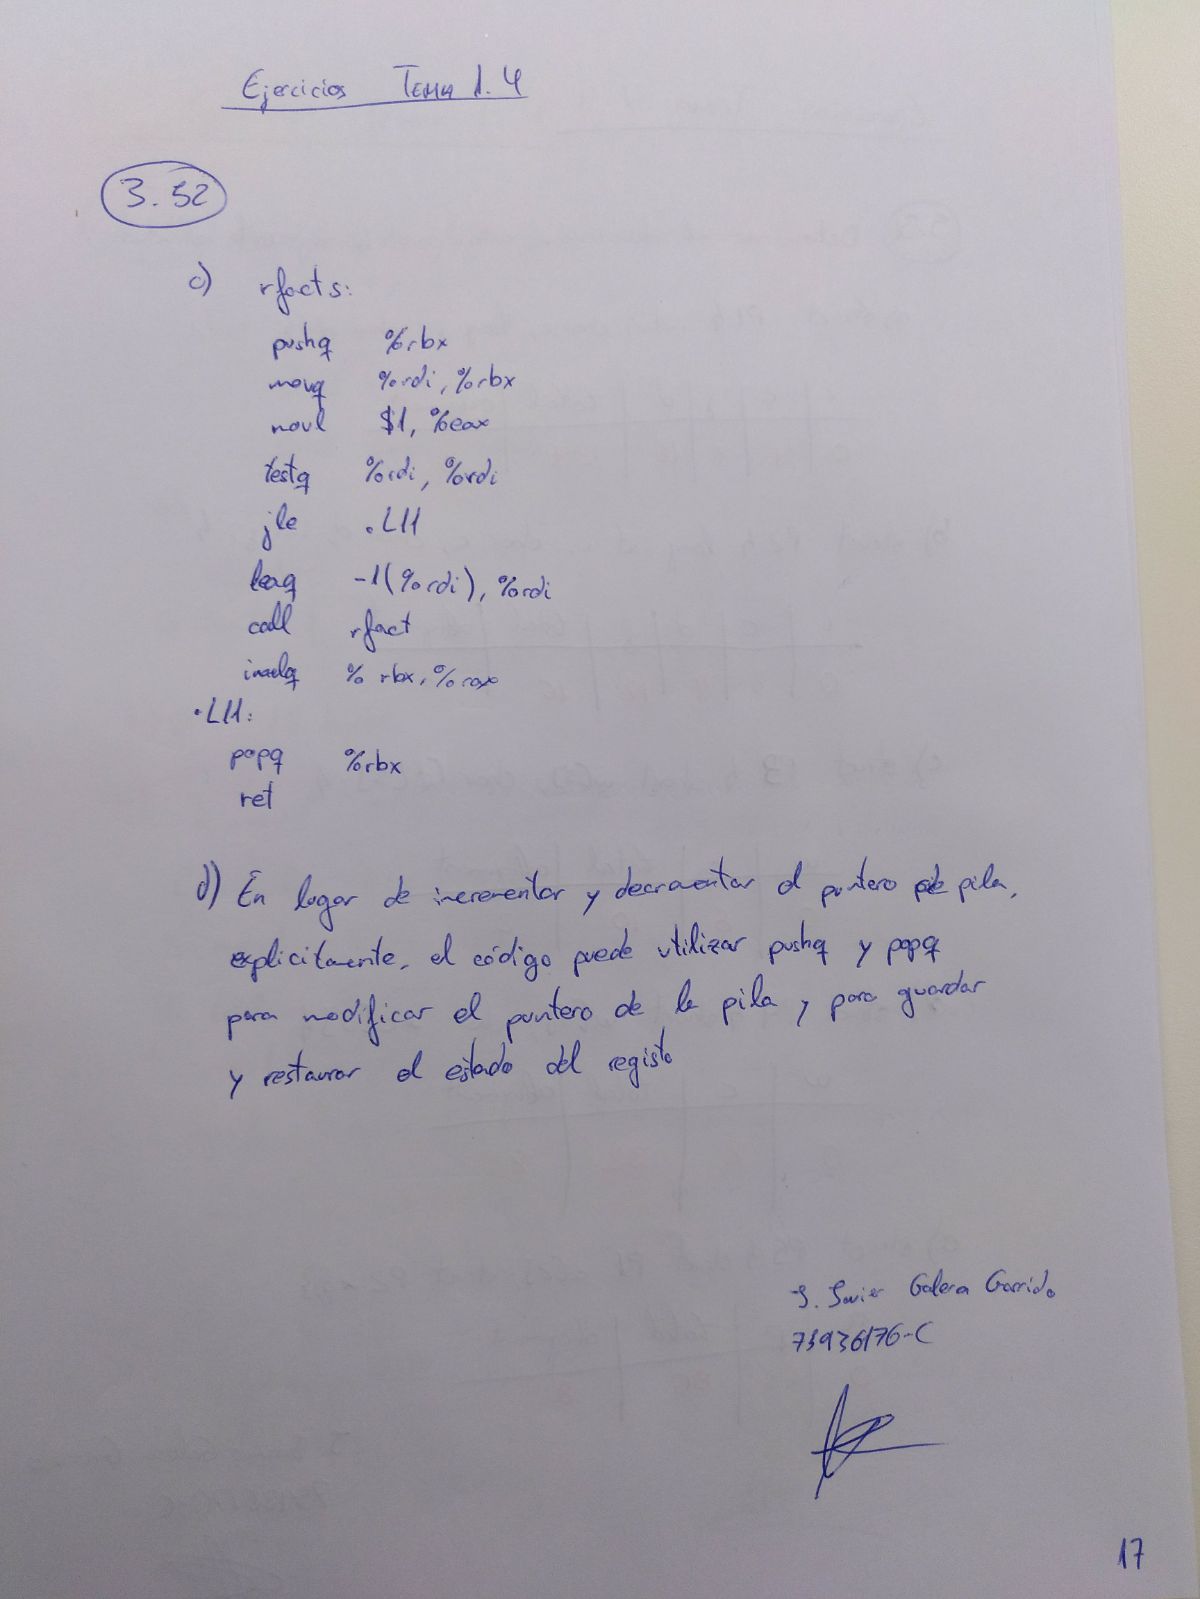 Ejercicios Tema 1.4
3.52
c) rfacts:
pushq %rbx
movq %rdi, %rbx
movl $1, %eax
testq %rdi, %rdi
jle .L11
leaq -1(%rdi), %rdi
call rfact
%rbx, %rax
.L11:
popq %rbx
ret
d) En lugar de incrementar y decrementar el puntero de pila,
explicitamente, el código puede utilizar pushq y popq
para modificar el puntero de la pila y para guardar
y restaurar el estado del registo
J. Javier Galera Garrido
73936176-C
17